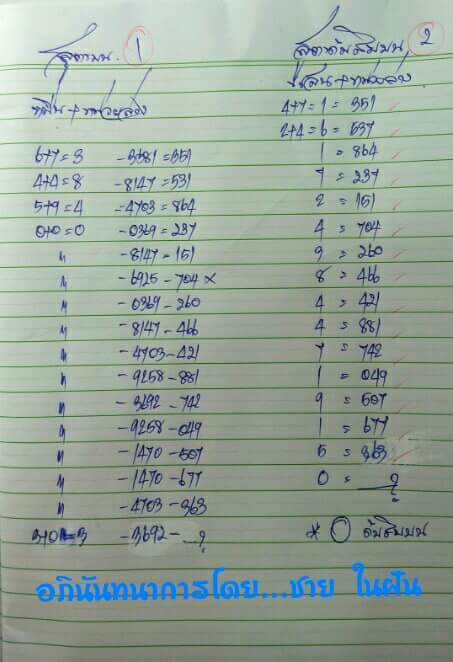 สูตรบน. 1
หมื่น + หน่วยล่าง
6+7=3 -3381=351
4+4=8 -8147=531
5+9=4 -4703=864
0+0=0 -0369=237
" -8147=151
" -6925-704 ×
" -0369-260
" -8147-466
" -4703-421
" -9258-881
" -3692-742
" -9258-049
" -1470-507
" -1470-677
" -4703-363
-3692-__?
2
4+7=1=351
2+4=6=537
1=864
7=237
2=151
4=704
9=260
8=466
4=421
4=881
7=742
1=049
9=507
1=677
5=363
0=__?
* ◯
อภินันทนาการโดย...ชาย ในฝัน